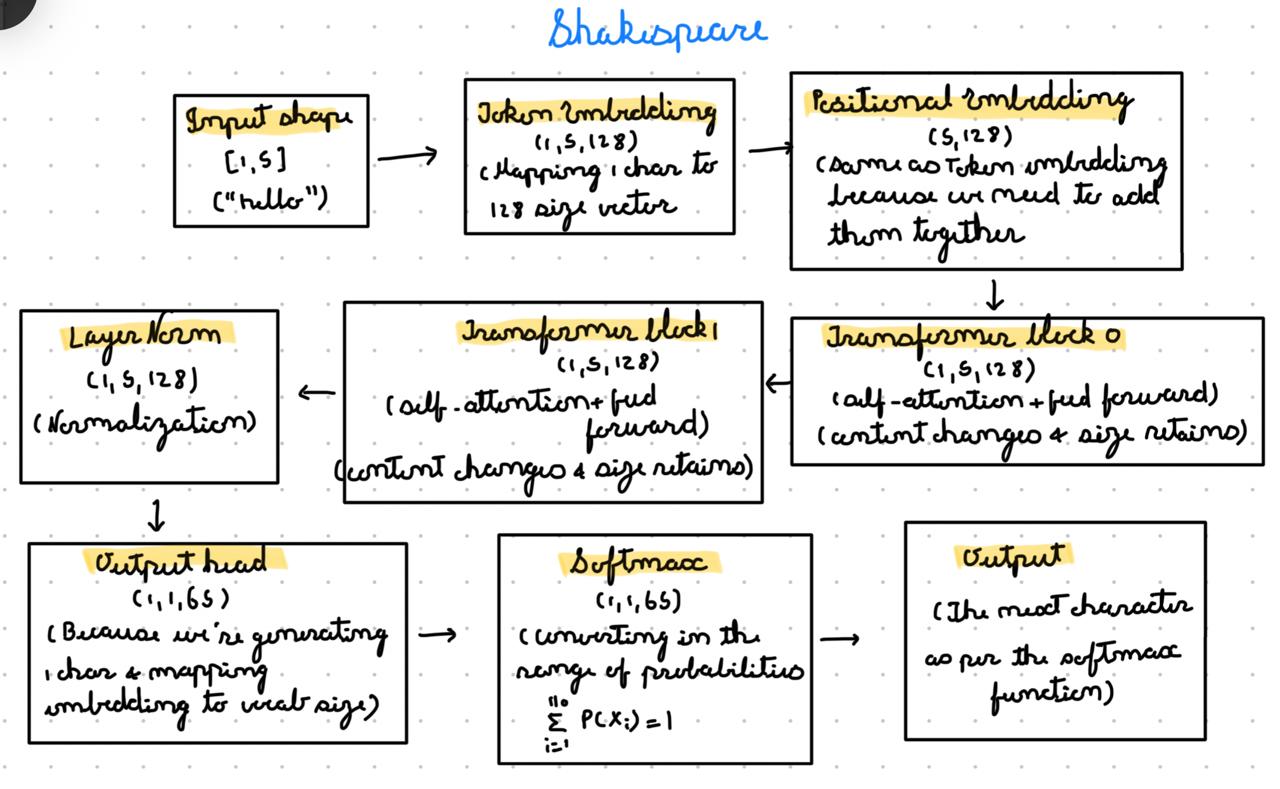 Shakespeare
Input shape
[1,5]
("hello")
Token Embedding
(1,5,128)
(Mapping 1 char to
128 size vector
Positional Embedding
(5,128)
(same as Token embedding
because we need to add
them together
Transformer block 0
(1,5,128)
(self-attention + feed forward)
(content changes & size retains)
Transformer block 1
(1,5,128)
(self-attention + feed
forward)
(content changes & size retains)
Layer Norm
(1,5,128)
(Normalization)
Output head
(1,1,65)
(Because we're generating
1 char & mapping
embedding to vocab size)
Softmax
(1,1,65)
(converting in the
range of probabilities
Σ P(Xi) = 1
i=1
Output
(The next character
as per the softmax
function)